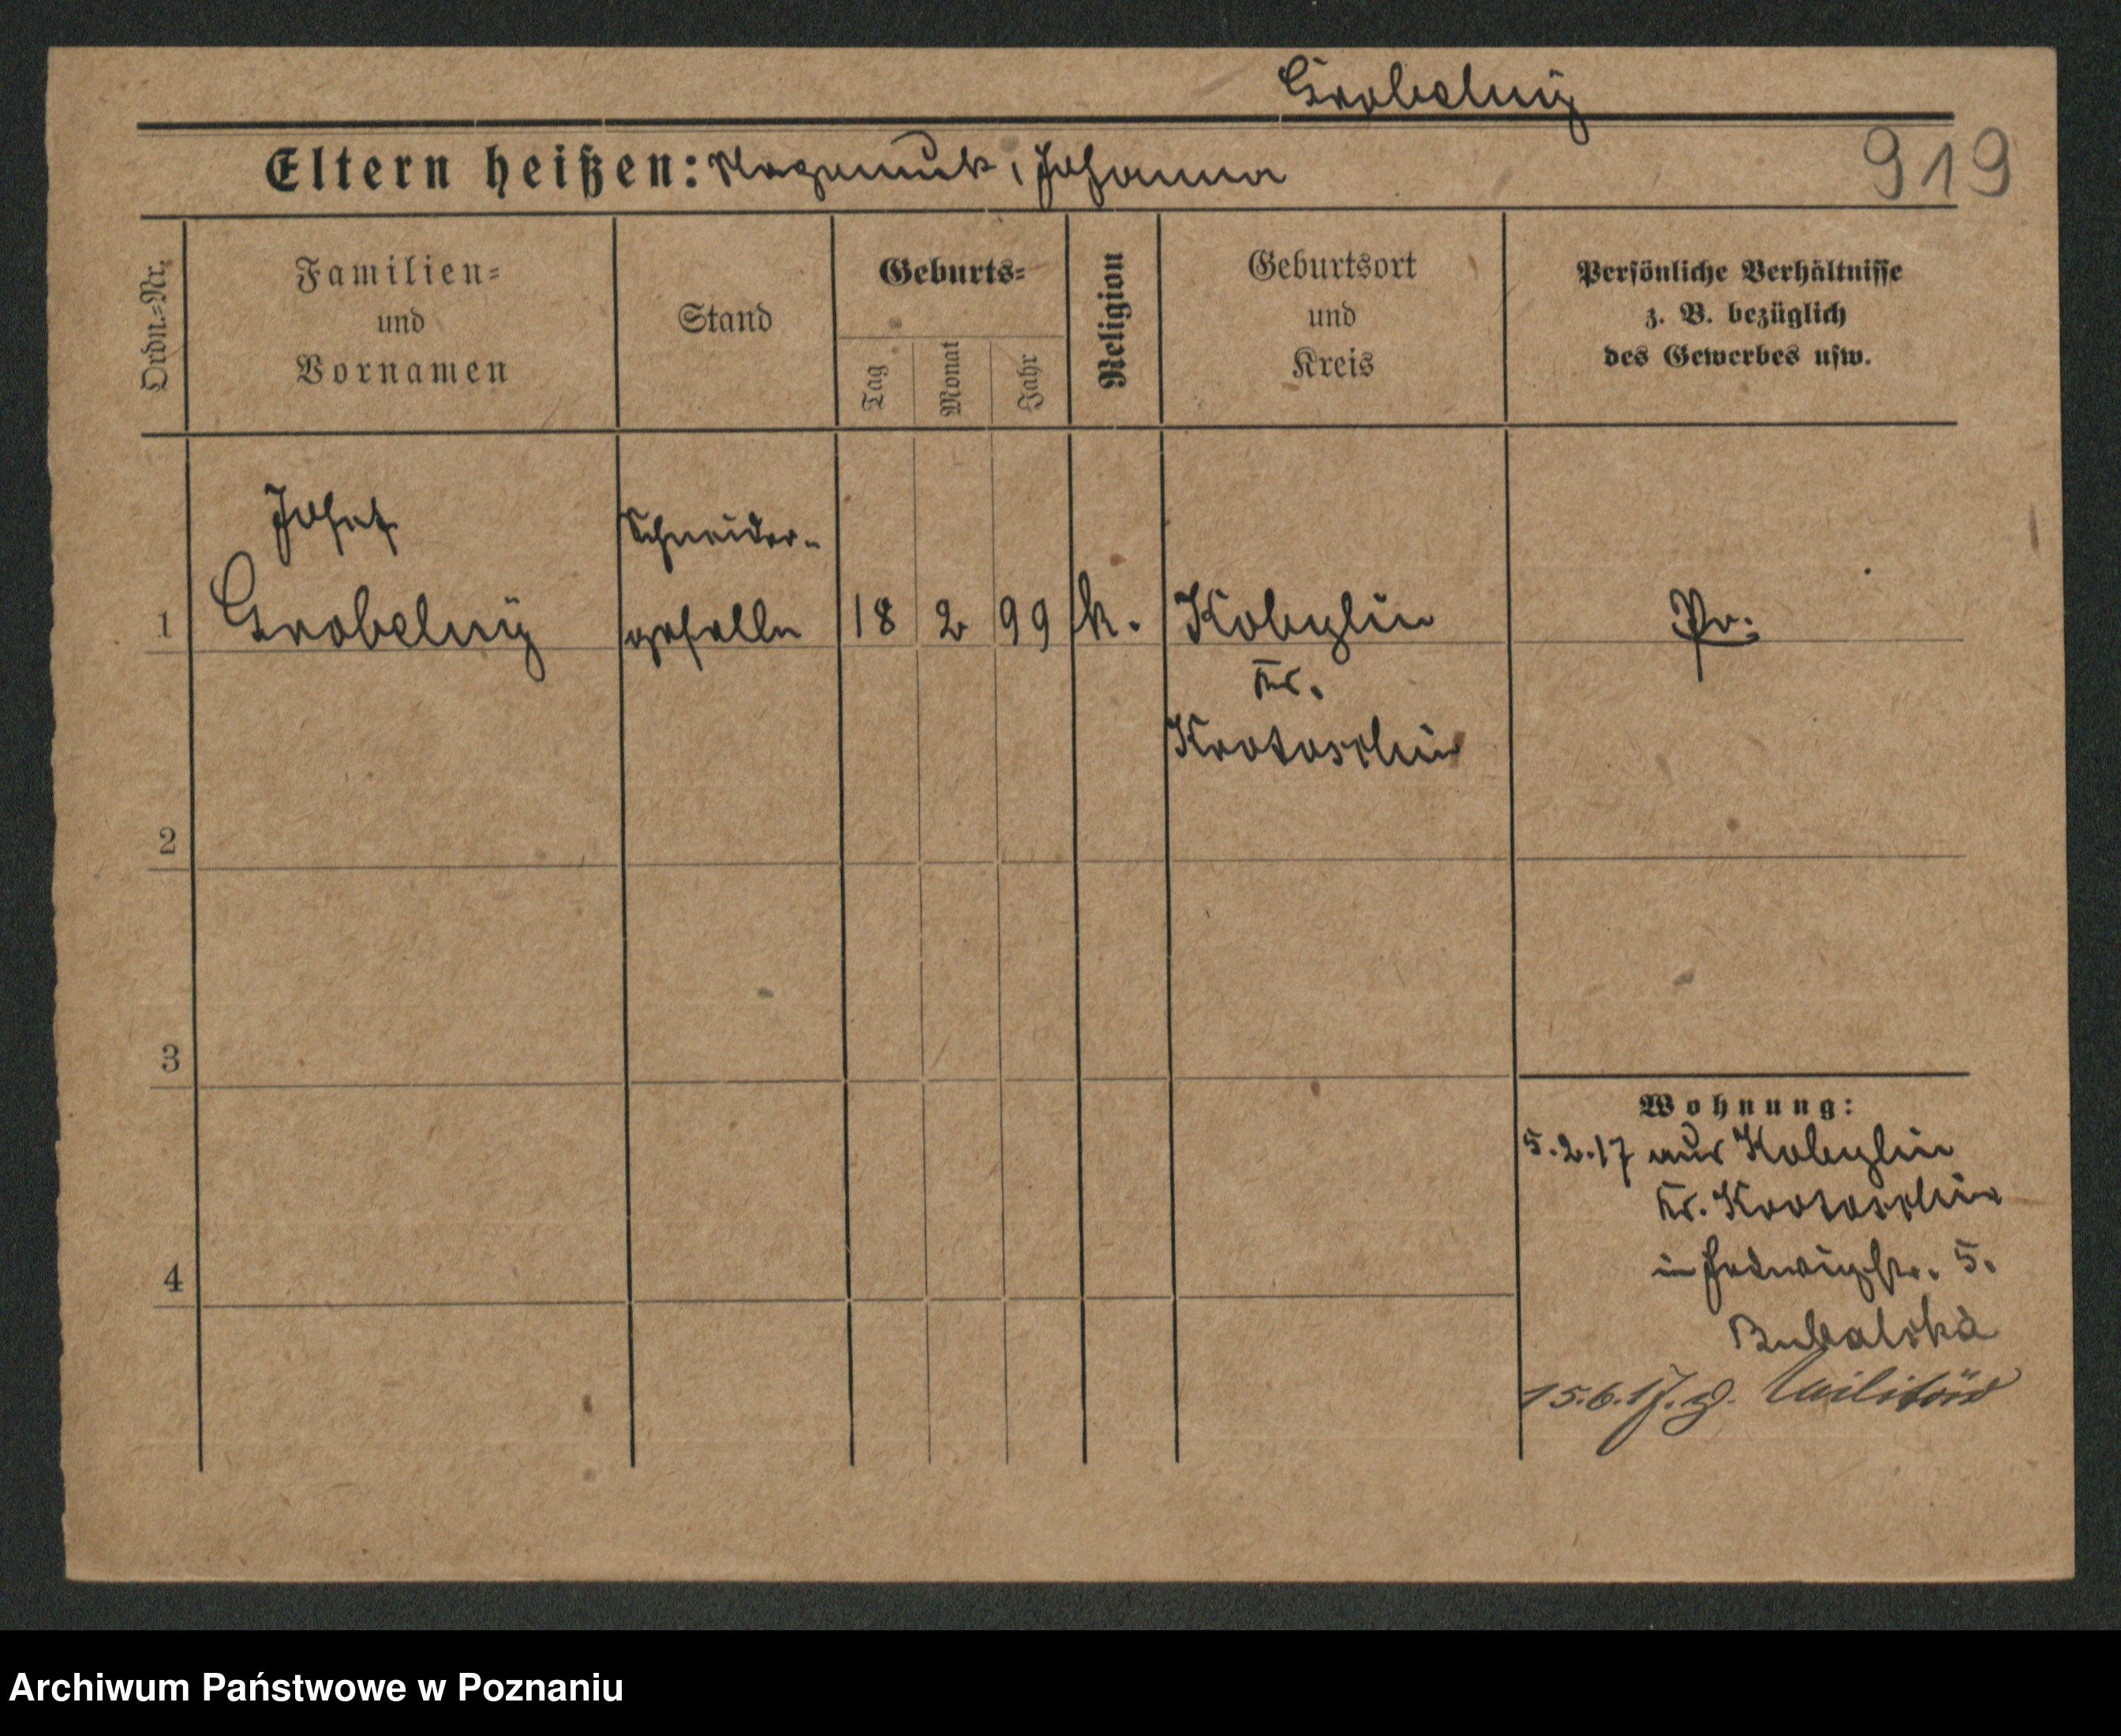 Grobelny
Eltern heißen: Nepomuk, Johanna
919
Ordn.-Nr.
Familien-
und
Vornamen
Stand
Geburts-
Tag
Monat
Jahr
Religion
Geburtsort
und
Kreis
Persönliche Verhältnisse
z. B. bezüglich
des Gewerbes usw.
Josef
Schneider-
1 Grobelny geselle 18 2 99 k. Kobylin Pr.
Kr.
Krotoschin
2
3
4
Wohnung:
5.2.17 aus Kobylin
Kr. Krotoschin
in Hedwigstr. 5.
15.6.17. z. Militär
Archiwum Państwowe w Poznaniu